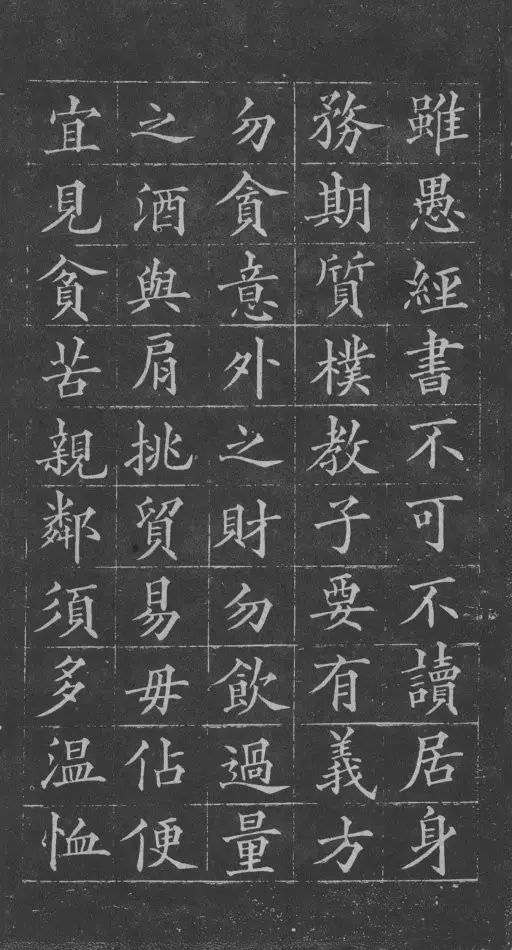 雖愚經書不可不讀居身
務期質樸教子要有義方
勿貪意外之財勿飲過量
之酒與肩挑貿易毋佔便
宜見貧苦親鄰須多温恤